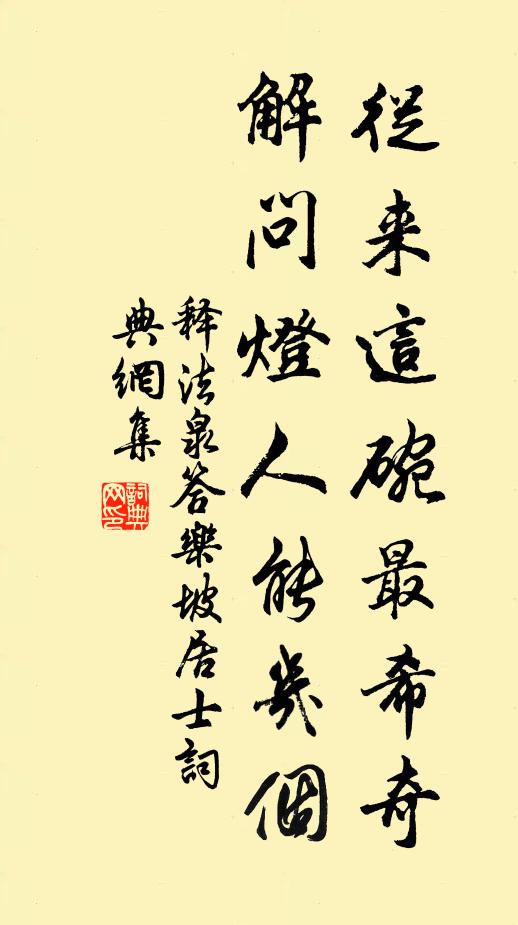 從来這碗最希奇
解問燈人能幾個
释法泉答樂坡居士詞
典網集
詞典网印